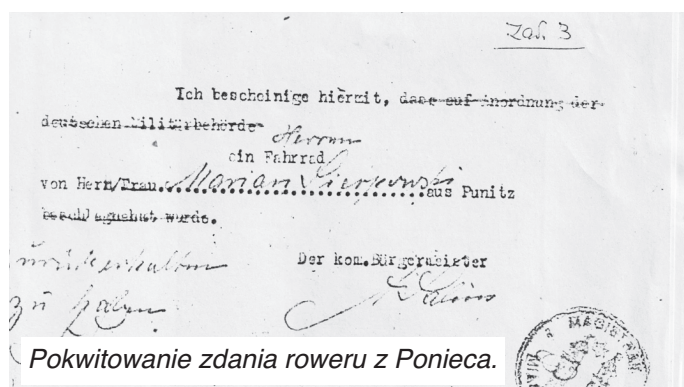 Zał. 3
Ich bescheinige hiermit, dass auf Anordnung der
deutschen Militärbehörde
Herren
ein Fahrrad
von Herr/Frau Marian aus Punitz
beschlagnahmt wurde.
zurückerhalten
Der kom. Bürgermeister
zu haben
MAGISTRAT
Pokwitowanie zdania roweru z Ponieca.